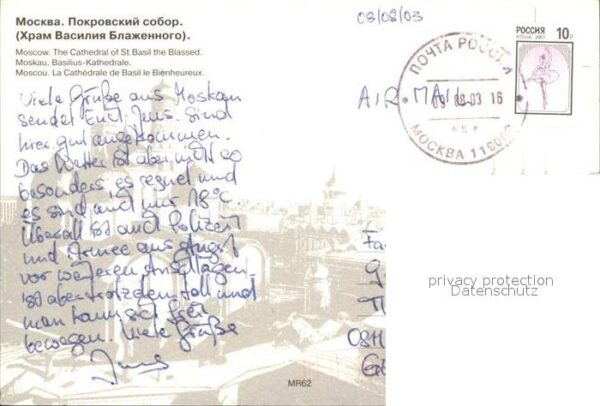 Москва. Покровский собор.
(Храм Василия Блаженного).
Moscow. The Cathedral of St.Basil the Blassed.
Moskau. Basilius-Kathedrale.
Moscou. La Cathédrale de Basil le Bienheureux.
03/08/03
РОССИЯ 10
ROSSIJA 2001
ПОЧТА РОССИИ
08-03 16
МОСКВА
AIR MAIL
Viele Grüße aus Moskau
sendet Euch Jens. Sind
hier gut angekommen.
Das Wetter ist aber nicht so
besonders, es regnet und
es sind auch nur 18°C.
Überall ist auch Polizei
und Armee aus Angst
vor weiteren Anschlägen.
Ist aber trotzdem toll und
man kann sich frei
bewegen. Viele Grüße
Jens
Fa
privacy protection
Datenschutz
MR62